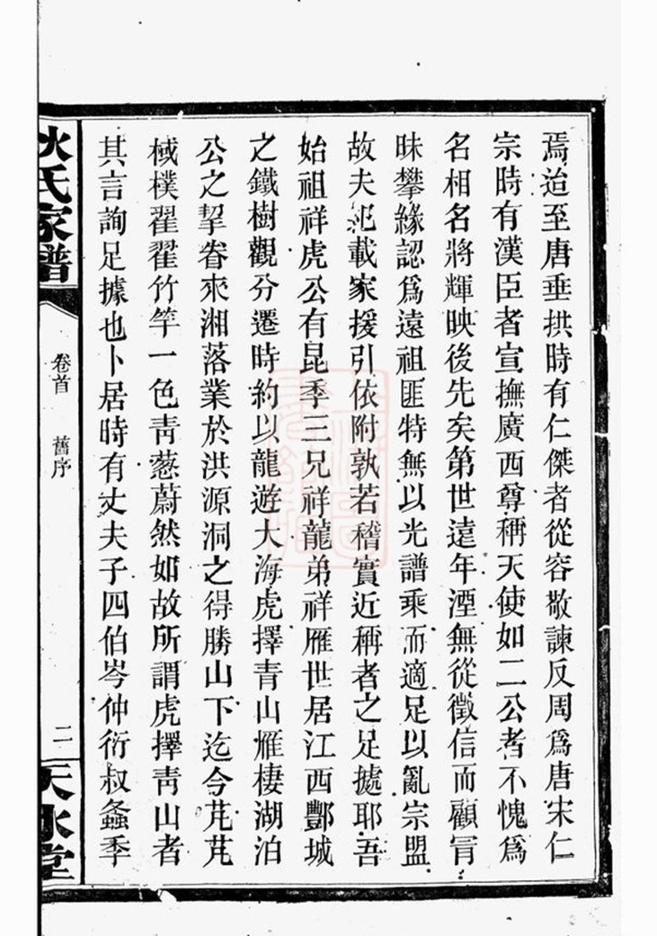 焉迨至唐垂拱時有仁傑者從容敬諫反周爲唐宋仁
宗時有漢臣者宣撫廣西尊稱天使如二公者不愧爲
名相名將輝映後先矣第世遠年湮無從徵信而顧冐
昧攀緣認爲遠祖匪特無以光譜乘而適足以亂宗盟
故夫汜載家援引依附孰若稽實近稱者之足據耶吾
始祖祥虎公有昆季三兄祥龍弟祥雁世居江西酆城
之鐵樹觀分遷時約以龍遊大海虎擇青山雁棲湖泊
公之挈眷來湘落業於洪源洞之得勝山下迄今芃芃
棫樸翟翟竹竿一色靑葱蔚然如故所謂虎擇靑山者
其言詢足據也卜居時有丈夫子四伯岑仲衍叔螽季
狄氏家譜
卷首 舊序
二
天水堂